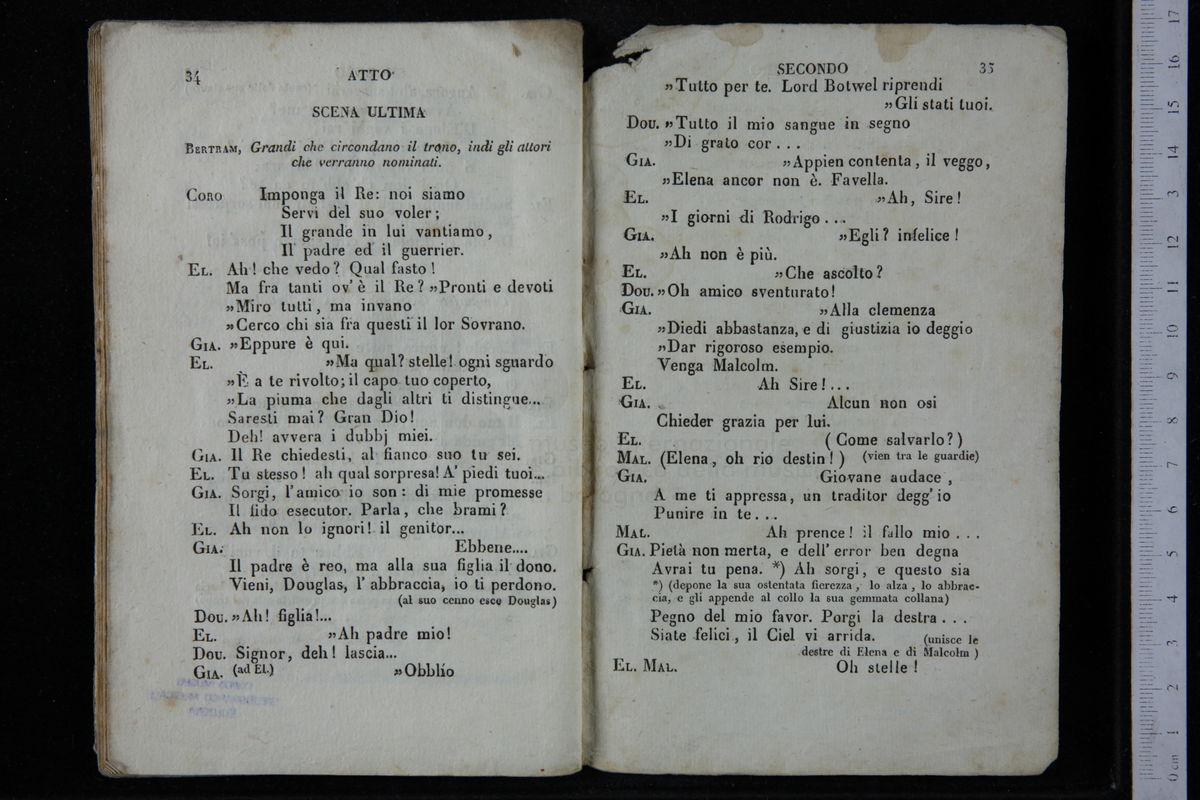 34 ATTO
SCENA ULTIMA
BERTRAM, Grandi che circondano il trono, indi gli attori
che verranno nominati.
CORO Imponga il Re: noi siamo
Servi del suo voler;
Il grande in lui vantiamo,
Il padre ed il guerrier.
EL. Ah! che vedo? Qual fasto!
Ma fra tanti ov' è il Re? »Pronti e devoti
»Miro tutti, ma invano
»Cerco chi sia fra questi il lor Sovrano.
GIA. »Eppure è qui.
EL. »Ma qual? stelle! ogni sguardo
»È a te rivolto; il capo tuo coperto,
»La piuma che dagli altri ti distingue...
Saresti mai? Gran Dio!
Deh! avvera i dubbj miei.
GIA. Il Re chiedesti, al fianco suo tu sei.
EL. Tu stesso! ah qual sorpresa! A' piedi tuoi...
GIA. Sorgi, l'amico io son: di mie promesse
Il fido esecutor. Parla, che brami?
EL. Ah non lo ignori! il genitor...
GIA. Ebbene....
Il padre è reo, ma alla sua figlia il dono.
Vieni, Douglas, l' abbraccia, io ti perdono.
(al suo cenno esce Douglas)
DOU. »Ah! figlia!...
EL. »Ah padre mio!
DOU. Signor, deh! lascia...
GIA. (ad El.) »Obblìo
SECONDO 35
»Tutto per te. Lord Botwel riprendi
»Gli stati tuoi.
DOU. »Tutto il mio sangue in segno
»Di grato cor...
GIA. »Appien contenta, il veggo,
»Elena ancor non è. Favella.
EL. »Ah, Sire!
»I giorni di Rodrigo...
GIA. »Egli? infelice!
»Ah non è più.
EL. »Che ascolto?
DOU. »Oh amico sventurato!
GIA. »Alla clemenza
»Diedi abbastanza, e di giustizia io deggio
»Dar rigoroso esempio.
Venga Malcolm.
EL. Ah Sire!...
GIA. Alcun non osi
Chieder grazia per lui.
EL. (Come salvarlo?)
MAL. (Elena, oh rio destin!) (vien tra le guardie)
GIA. Giovane audace,
A me ti appressa, un traditor degg' io
Punire in te...
MAL. Ah prence! il fallo mio...
GIA. Pietà non merta, e dell' error ben degna
Avrai tu pena. *) Ah sorgi, e questo sia
*) (depone la sua ostentata fierezza, lo alza, lo abbrac-
cia, e gli appende al collo la sua gemmata collana)
Pegno del mio favor. Porgi la destra...
Siate felici, il Ciel vi arrida. (unisce le
destre di Elena e di Malcolm)
EL. MAL. Oh stelle!